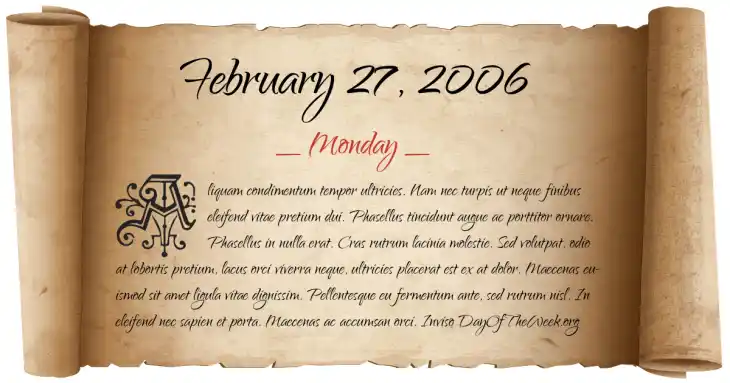 February 27, 2006
_ Monday _
Aliquam condimentum tempor ultricies. Nam nec turpis ut neque finibus
eleifend vitae pretium dui. Phasellus tincidunt augue ac porttitor ornare.
Phasellus in nulla erat. Cras rutrum lacinia molestie. Sed volutpat, odio
at lobortis pretium, lacus orci viverra neque, ultricies placerat est ex at dolor. Maecenas eu-
ismod sit amet ligula vitae dignissim. Pellentesque eu fermentum ante, sed rutrum nisl. In
eleifend nec sapien et porta. Maecenas ac accumsan orci. Inviso DayOfTheWeek.org